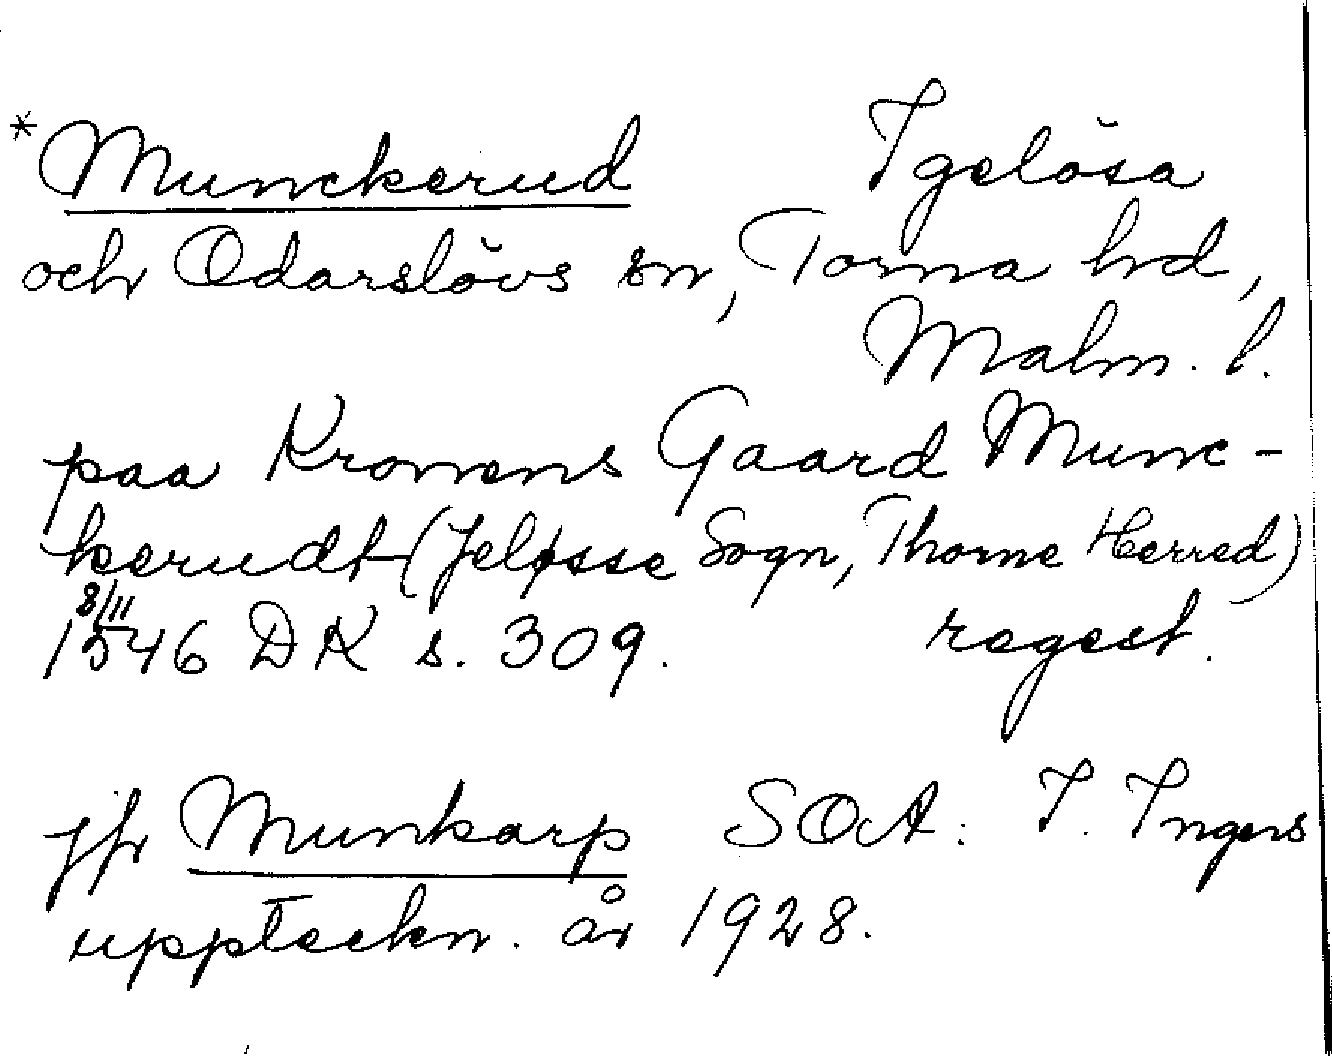 *Munckerud Igelösa
och Odarslövs sn, Torna hd,
Malm. l.
paa Kronens Gaard Munc-
kerudt (Jeløsse Sogn, Thorne Herred)
8/11
1546 DK s. 309. regest.
jfr Munkarp SOA: I. Ingers
uppteckn. år 1928.